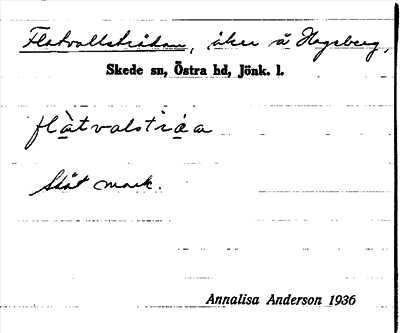 Flatvallstrådan, åker å Hagsberg,
Skede sn, Östra hd, Jönk. l.
flàtvalstråa
Slät mark.
Annalisa Anderson 1936